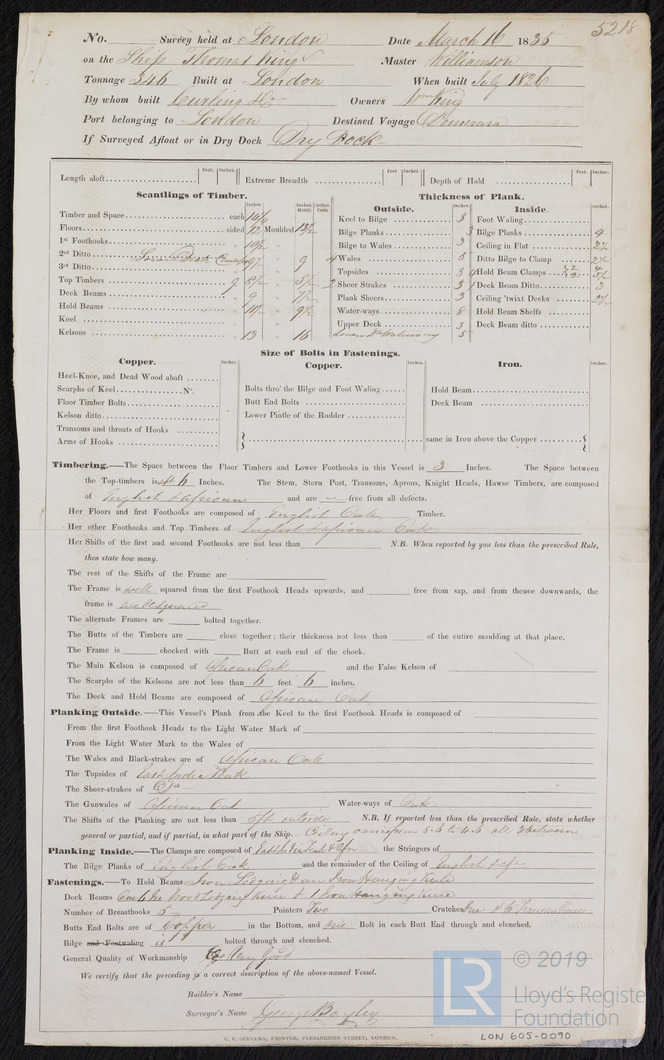 5218
No. Survey held at London Date March 16 1835
on the Ship Thomas King Master Williamson
Tonnage 346 Built at London When built July 1826
By whom built Curling & Co Owners Wm King
Port belonging to London Destined Voyage Demerara
If Surveyed Afloat or in Dry Dock Dry Dock
Length aloft Feet. Inches. Extreme Breadth Feet. Inches. Depth of Hold Feet. Inches.
Scantlings of Timber.
Inches Inches Middle Inches Ends
Timber and Space each
Floors sided 12 Moulded
1st Foothooks
2nd Ditto 9
3rd Ditto
Top Timbers
Deck Beams 9
Hold Beams
Keel
Kelsons 13 16
Thickness of Plank.
Outside. Inches.
Keel to Bilge 3
Bilge Planks 3
Bilge to Wales 3
Wales 5
Topsides 3
Sheer Strakes 3
Plank Sheers 3
Water-ways 8
Upper Deck 3
Inside. Inches.
Foot Waling
Bilge Planks
Ceiling in Flat 2½
Ditto Bilge to Clamp 2½
Hold Beam Clamps
Deck Beam Ditto 3
Ceiling 'twixt Decks 2½
Hold Beam Shelfs
Deck Beam ditto
Size of Bolts in Fastenings.
Copper. Inches.
Heel-Knee, and Dead Wood abaft
Scarphs of Keel No.
Floor Timber Bolts
Kelson ditto
Transoms and throats of Hooks
Arms of Hooks
Copper. Inches.
Bolts thro' the Bilge and Foot Waling
Butt End Bolts
Lower Pintle of the Rudder
Iron. Inches.
Hold Beam
Deck Beam
same in Iron above the Copper
Timbering.—The Space between the Floor Timbers and Lower Foothooks in this Vessel is 3 Inches. The Space between
the Top-timbers is 4 to 6 Inches. The Stem, Stern Post, Transoms, Aprons, Knight Heads, Hawse Timbers, are composed
of English & African and are — free from all defects.
Her Floors and first Foothooks are composed of English Oak Timber.
Her other Foothooks and Top Timbers of English & African Oak
Her Shifts of the first and second Foothooks are not less than N.B. When reported by you less than the prescribed Rule,
then state how many.
The rest of the Shifts of the Frame are
The Frame is well squared from the first Foothook Heads upwards, and free from sap, and from thence downwards, the
frame is well squared
The alternate Frames are bolted together.
The Butts of the Timbers are close together; their thickness not less than of the entire moulding at that place.
The Frame is chocked with Butt at each end of the chock.
The Main Kelson is composed of African Oak and the False Kelson of
The Scarphs of the Kelsons are not less than 6 feet 6 inches.
The Deck and Hold Beams are composed of African Oak
Planking Outside.—This Vessel's Plank from the Keel to the first Foothook Heads is composed of
From the first Foothook Heads to the Light Water Mark of
From the Light Water Mark to the Wales of
The Wales and Black-strakes are of African Oak
The Topsides of East India Teak
The Sheer-strakes of Do
The Gunwales of African Oak Water-ways of Oak
The Shifts of the Planking are not less than 5ft outside N.B. If reported less than the prescribed Rule, state whether
general or partial, and if partial, in what part of the Ship.
Planking Inside.—The Clamps are composed of East India Teak & Afn the Stringers of
The Bilge Planks of English Oak and the remainder of the Ceiling of English & Afn
Fastenings.—To Hold Beams Iron Lodging & an Iron Hanging Knee
Deck Beams Wood Lodging Knee & 1 Iron Hanging Knee
Number of Breasthooks 5 Pointers Two Crutches
Butts End Bolts are of Copper in the Bottom, and one Bolt in each Butt End through and clenched.
Bilge and Footwaling is bolted through and clenched.
General Quality of Workmanship Very Good
We certify that the preceding is a correct description of the above-named Vessel.
Builder's Name
Surveyor's Name George Bayley
C. F. SEYFANG, PRINTER, FARRINGDON STREET, LONDON.
LR © 2019
Lloyd's Register
Foundation
LON 605-0090